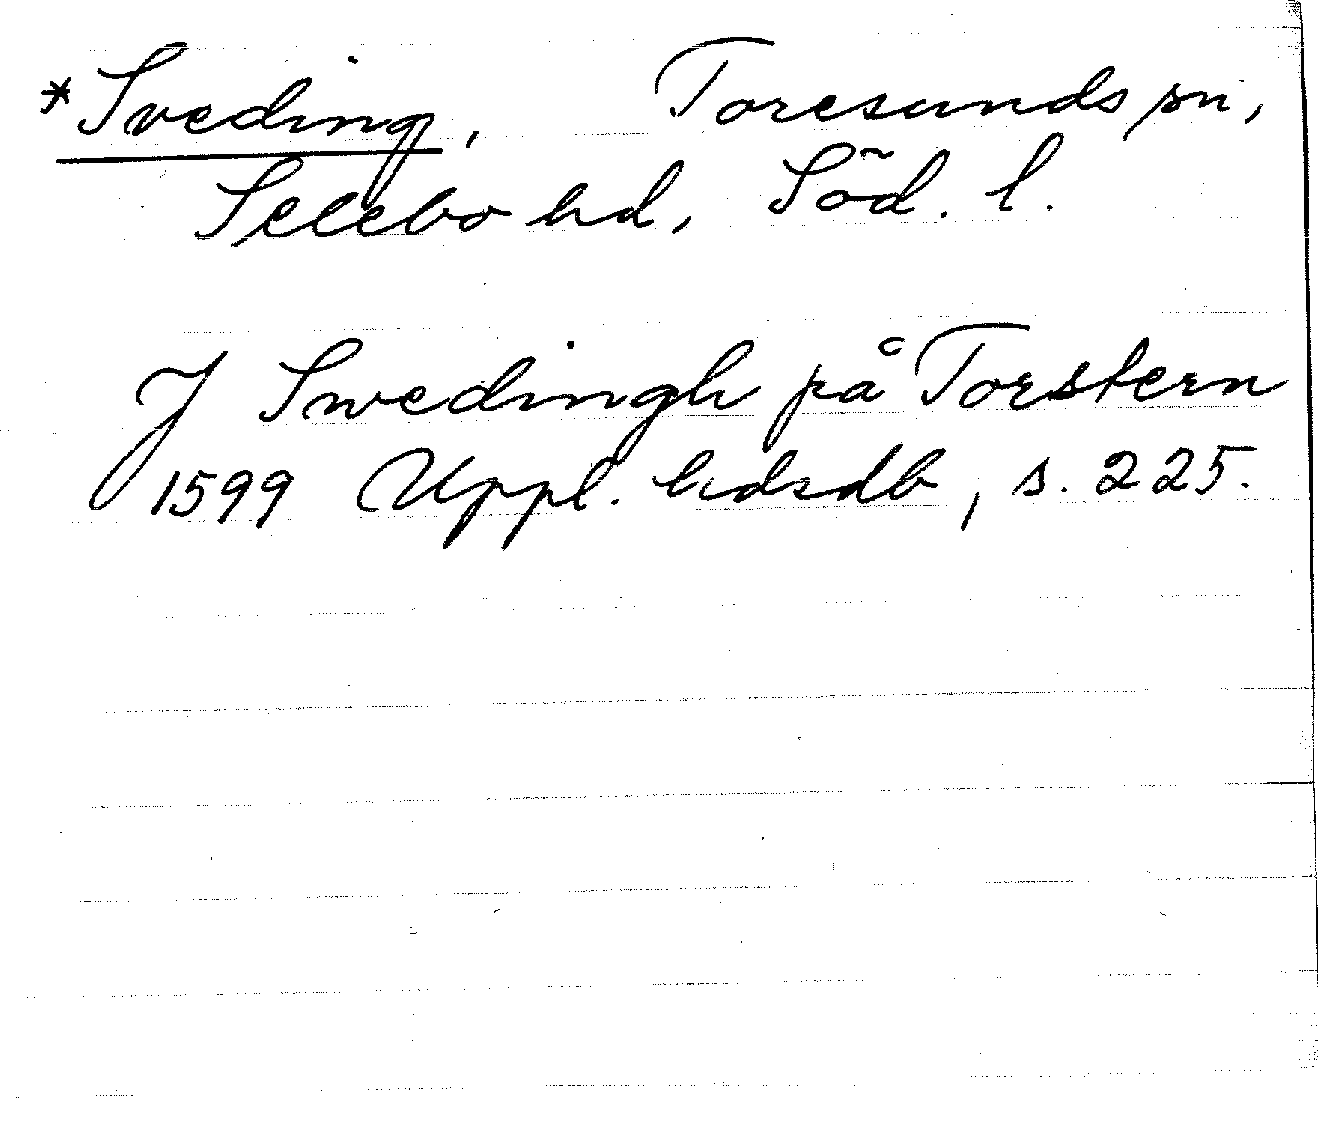 *Sveding, Toresunds sn,
Selebo hd, Söd. l.
J Swedingh på Torstern
1599 Uppl. hdsdb, s. 225.